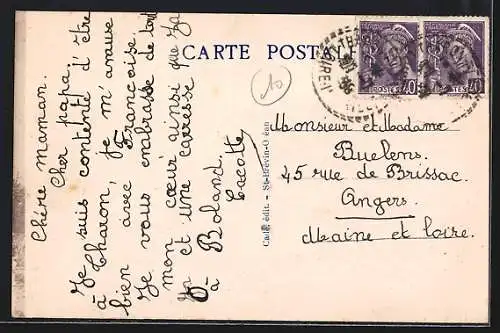 CARTE POSTALE
Chère maman.
Cher papa.
Je suis contente d'être
à Charon, je m'amuse
bien avec Françoise.
Je vous embrasse de tout
mon cœur ainsi que Za
et une caresse
à Boland.
Cacotte
10
Cadé édit. - St-Brévin-Océan
POSTES 40
POSTES 40
Monsieur et Madame
Buelens.
45 rue de Brissac.
Angers.
Maine et Loire.